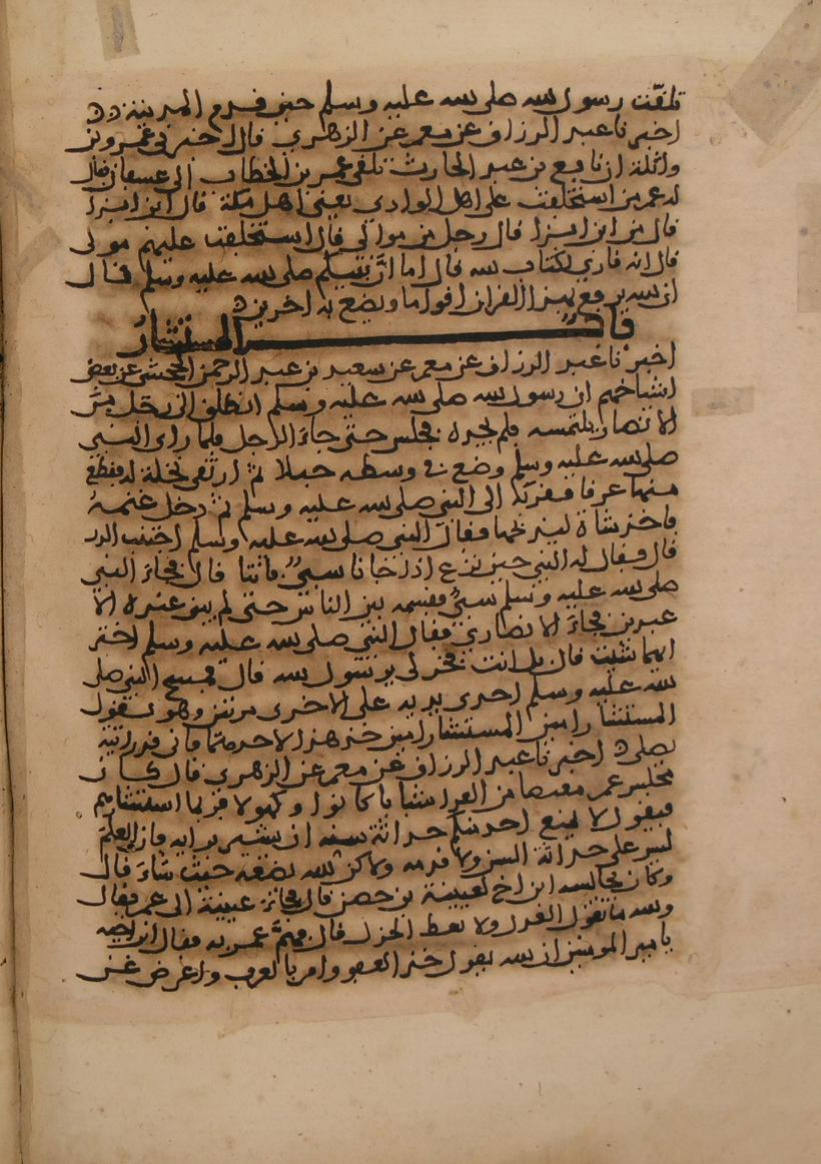 تلقت رسول الله صلى الله عليه وسلم حين قدم المدينة
اخبرنا عبد الرزاق عن معمر عن الزهري قال اخبرني عمرو بن
واثلة ان نافع بن عبد الحارث تلقى عمر بن الخطاب الى عسفان فقال
له عمر من استخلفت على اهل الوادي يعني اهل مكة قال ابن ابزا
قال من ابن ابزا قال رجل من موالي قال استخلفت عليهم مولى
قال انه قاري لكتاب الله قال اما ان نبيكم صلى الله عليه وسلم قال
ان الله يرفع بهذا القران اقواما ويضع به اخرين
باب المستشار
اخبرنا عبد الرزاق عن معمر عن سعيد بن عبد الرحمن الجحشي عن بعض
اشياخهم ان رسول الله صلى الله عليه وسلم انطلق الى رجل من
الانصار يلتمسه فلم يجده فجلس حتى جاء الرجل فلما راى النبي
صلى الله عليه وسلم وضع في وسطه حبلا ثم ارتقى نخلة له فقطع
منها عرقا فقربه الى النبي صلى الله عليه وسلم ثم دخل غنمه
فاخذ شاة ليذبحها فقال النبي صلى الله عليه وسلم اجتنب الدر
قال وقال له النبي حين نزع اذا جانا سبي فاتنا قال فجاء النبي
صلى الله عليه وسلم سبي فقسمه بين الناس حتى لم يبق عنده الا
عبدين فجاء الانصاري فقال النبي صلى الله عليه وسلم اختر
ايهما شئت قال بل انت فخر لي يرسول الله قال فمسح النبي صلى
الله عليه وسلم احدى يديه على الاخرى مرتين وهو يقول
المستشار امين المستشار امين خذ هذا لاحدهما فاني قد رايته
يصلي اخبرنا عبد الرزاق عن معمر عن الزهري قال كان
مجلس عمر مغتصا من القرا شبابا كانوا وكهولا فربما استشارهم
فيقول لا يمنع احد منكم حداثة سنه ان يشير برايه فان العلم
ليس على حداثة السن ولا قدمه ولاكن الله يضعه حيث شاء قال
وكان يجالسه ابن اخ لعيينة بن حصن قال فجاء عيينة الى عمر فقال
والله ما تقول العدل ولا تعط الجزل قال فهم عمر به فقال ابن اخيه
يامير المومنين ان الله يقول خذ العفو وامر بالعرف واعرض عن